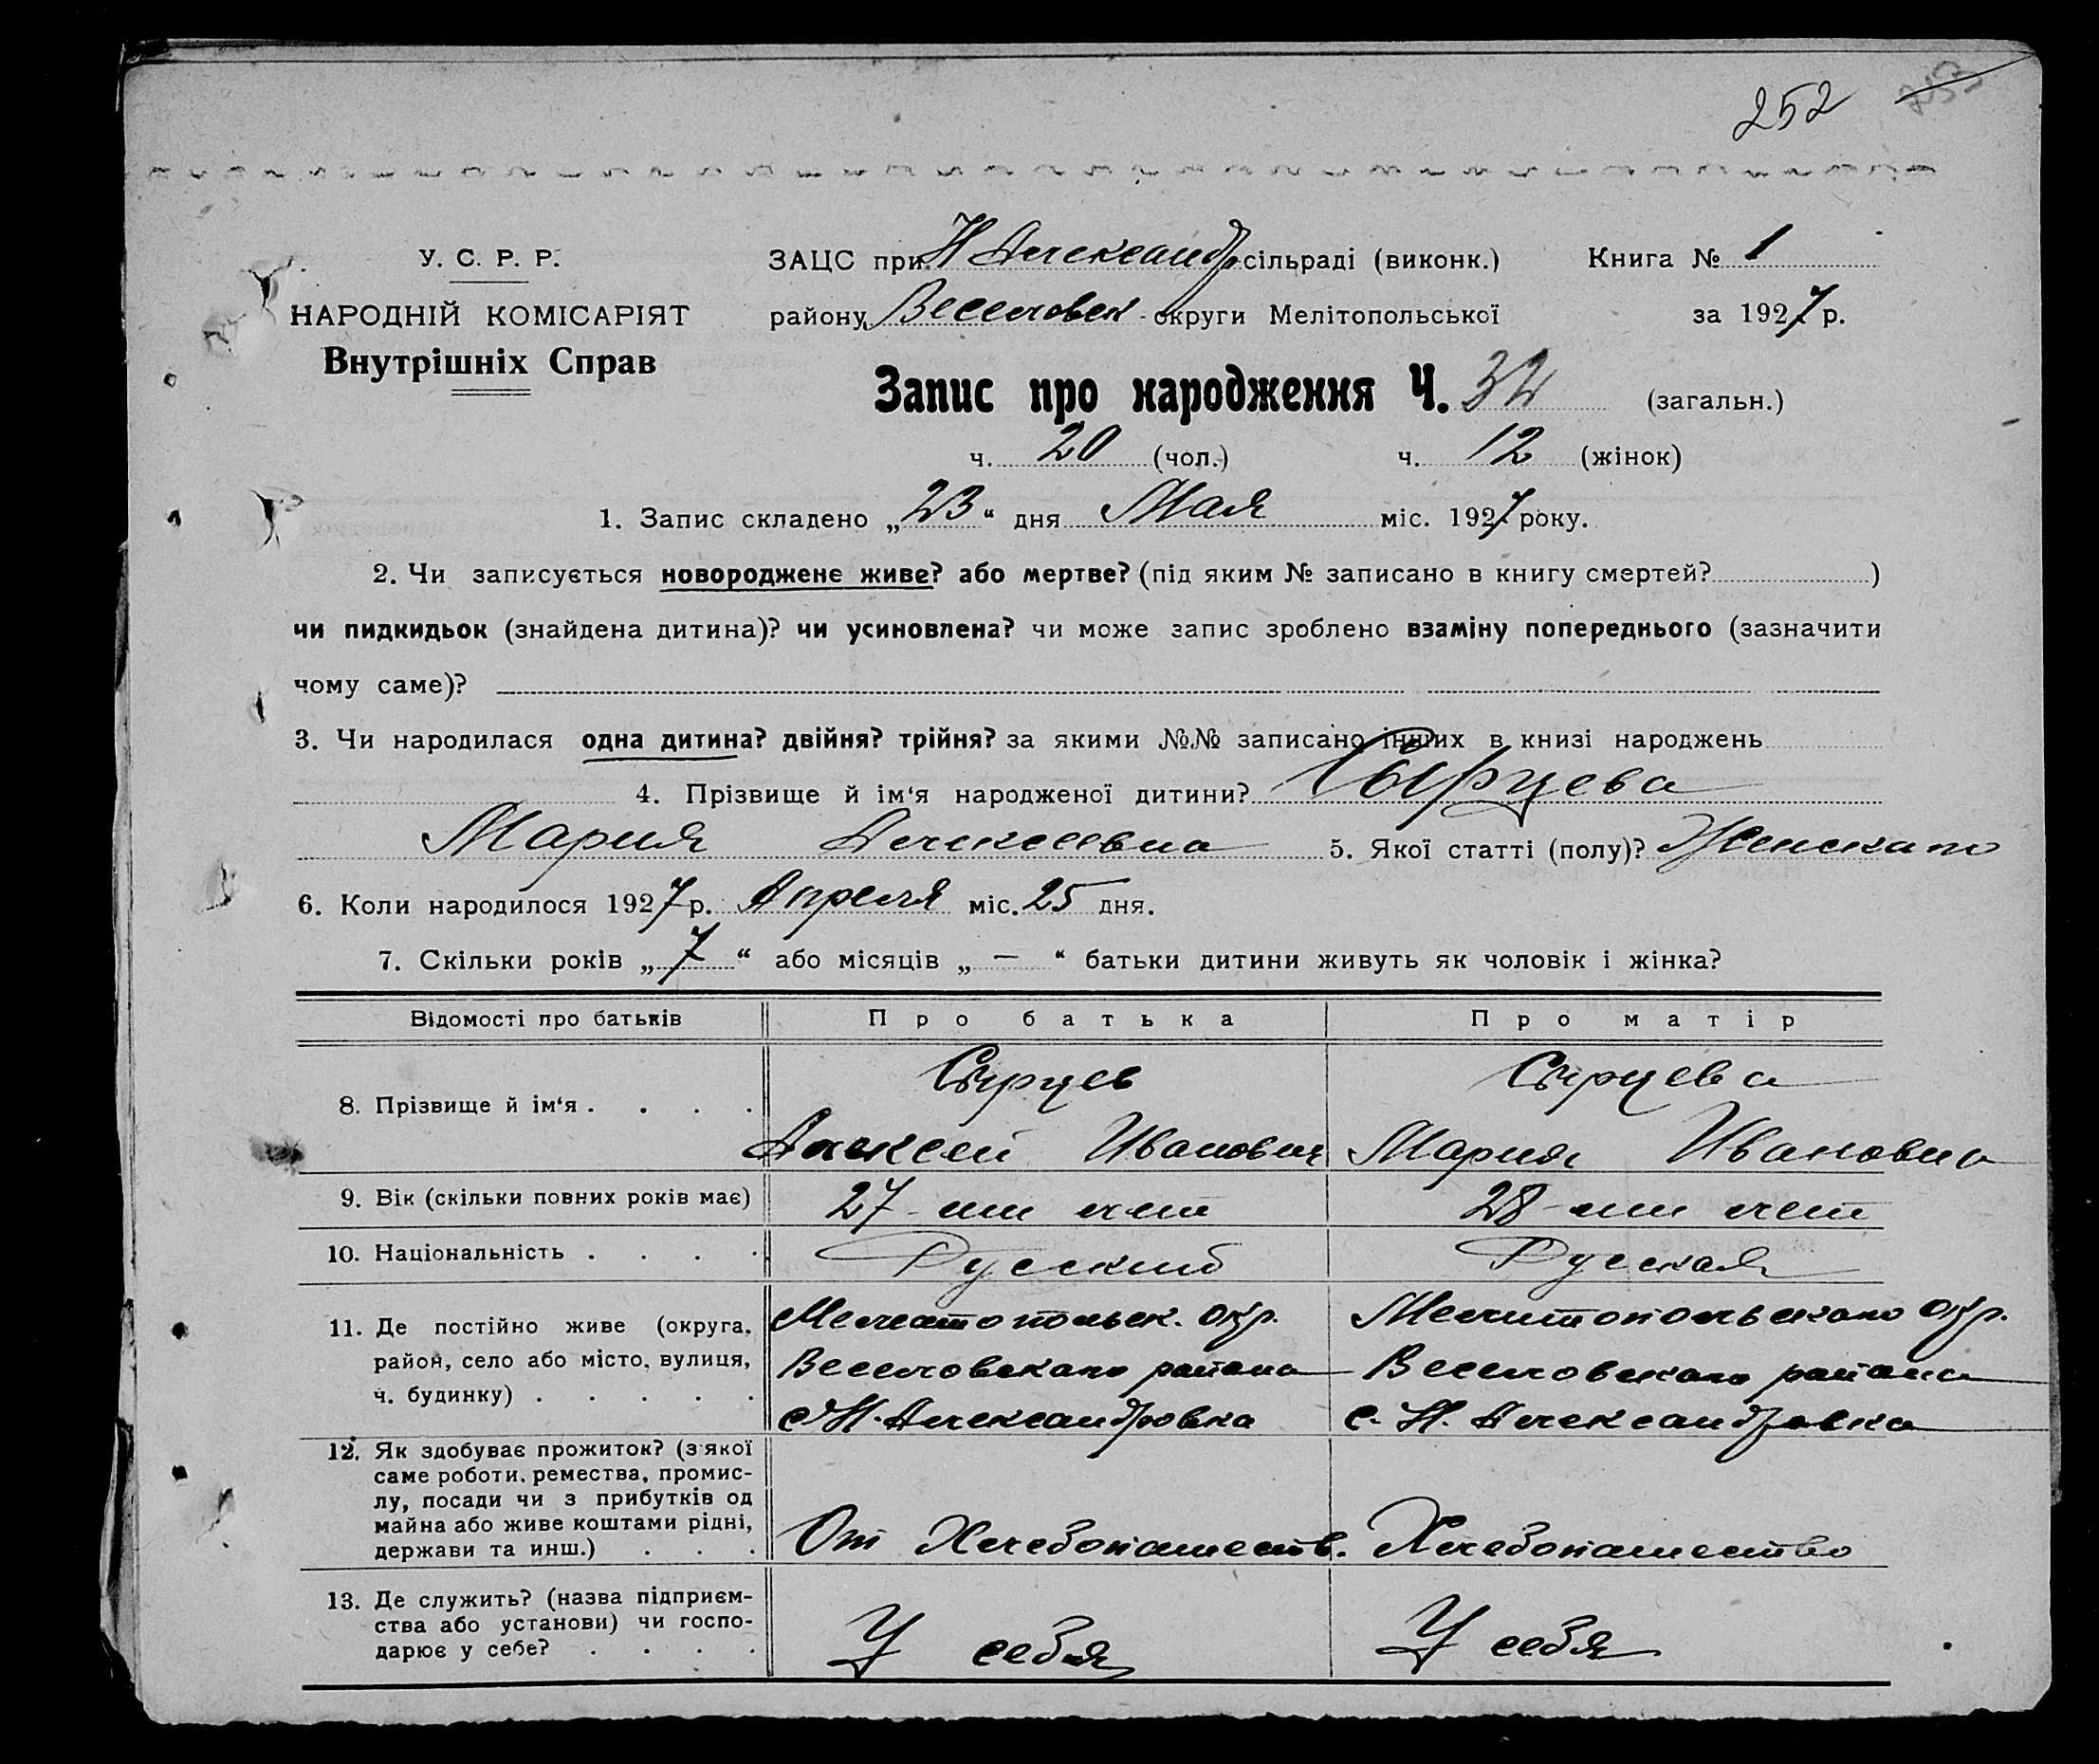 252
У. С. Р. Р.
НАРОДНІЙ КОМІСАРІЯТ
Внутрішніх Справ
ЗАЦС при Н Александр сільраді (виконк.) Книга № 1
району Веселовск округи Мелітопольської за 1927 р.
Запис про народження Ч. 32 (загальн.)
ч. 20 (чол.) ч. 12 (жінок)
1. Запис складено „23“ дня Мая міс. 1927 року.
2. Чи записується новороджене живе? або мертве? (під яким № записано в книгу смертей? )
чи пидкидьок (знайдена дитина)? чи усиновлена? чи може запис зроблено взаміну попереднього (зазначити
чому саме)?
3. Чи народилася одна дитина? двійня? трійня? за якими №№ записано інших в книзі народжень
4. Прізвище й ім‘я народженої дитини? Сырцева
Мария Алексеевна 5. Якої статті (полу)? Женскаго
6. Коли народилося 1927 р. Апреля міс. 25 дня.
7. Скільки років „7“ або місяців „—“ батьки дитини живуть як чоловік і жінка?
Відомості про батьків Про батька Про матір
8. Прізвище й ім‘я . . . . Сырцев Сырцева
Алексей Иванович Мария Ивановна
9. Вік (скільки повних років має) 27-ми лет 28-ми лет
10. Національність . . . . Русский Русская
11. Де постійно живе (округа, Мелитопольск. Окр. Мелитопольскаго Окр.
район, село або місто, вулиця, Веселовскаго района Веселовскаго района
ч. будинку) . . . . . с Н. Александровка с. Н. Александровка
12. Як здобуває прожиток? (з якої
саме роботи, ремества, промис-
лу, посади чи з прибутків од
майна або живе коштами рідні, От Хлебопашеств. Хлебопашество
держави та инш.) . . .
13. Де служить? (назва підприєм-
ства або установи) чи госпо- У себя У себя
дарює у себе? . . . .